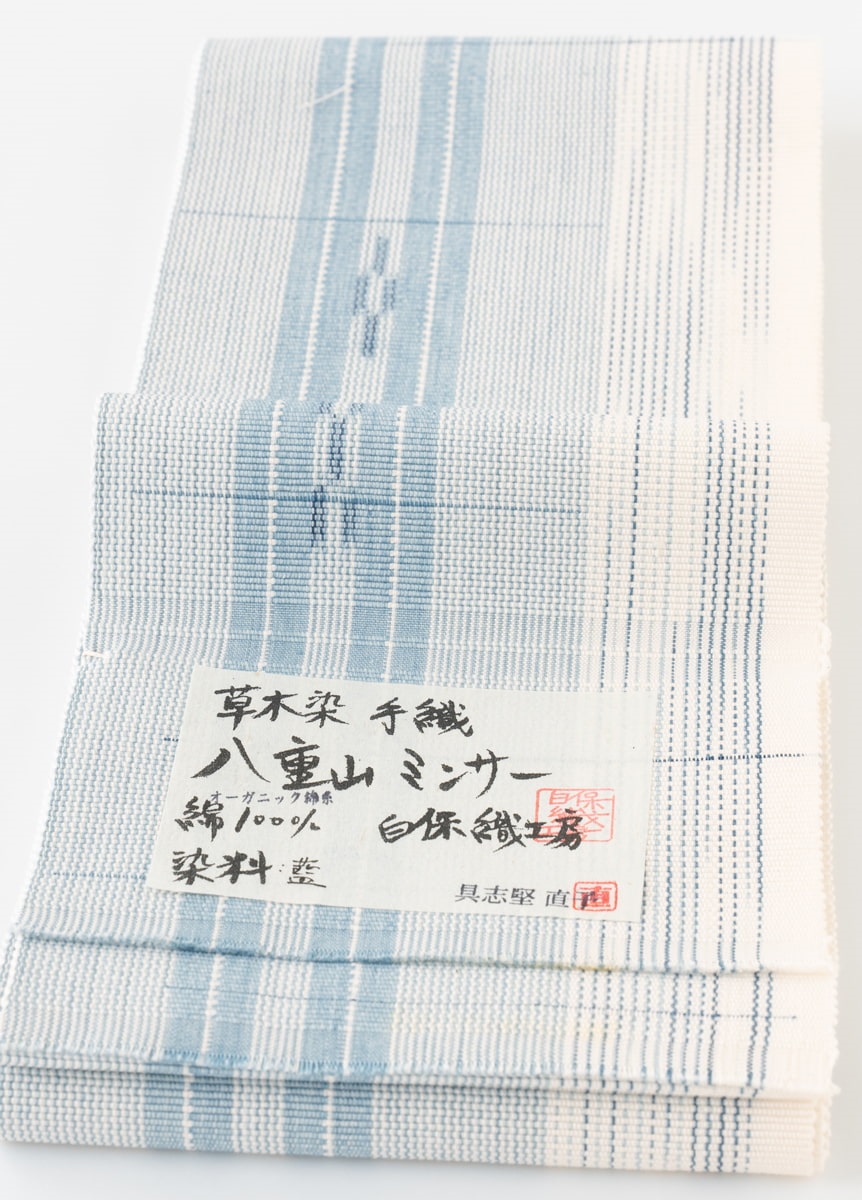 草木染 手織
八重山 ミンサー
オーガニック綿糸
綿100% 白保織工房
染料:藍
具志堅 直